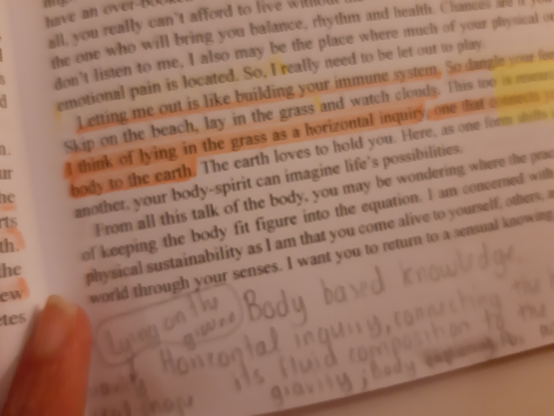 have an over-booked
all, you really can't afford to live without
the one who will bring you balance, rhythm and health. Chances are
don't listen to me, I also may be the place where much of your physical or
emotional pain is located. So, I really need to be let out to play.
Letting me out is like building your immune system. So dangle your feet
Skip on the beach, lay in the grass and watch clouds. This too is
I think of lying in the grass as a horizontal inquiry, one that
body to the earth. The earth loves to hold you. Here, as one form shifts
another, your body-spirit can imagine life's possibilities.
From all this talk of the body, you may be wondering where the
of keeping the body fit figure into the equation. I am concerned with
physical sustainability as I am that you come alive to yourself, others,
world through your senses. I want you to return to a sensual knowing
n.
ur
he
rts
th.
the
ew
etes
Lying on the
Body based knowledge
Horizontal inquiry, connecting the
its fluid composition to the
gravity; Body